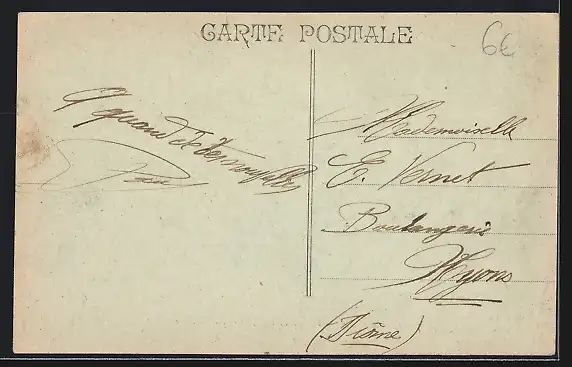 CARTE POSTALE
6€
A quand de tes nouvelles
Mademoiselle
E. Vernet
Boulangerie
Nyons
(Drôme)